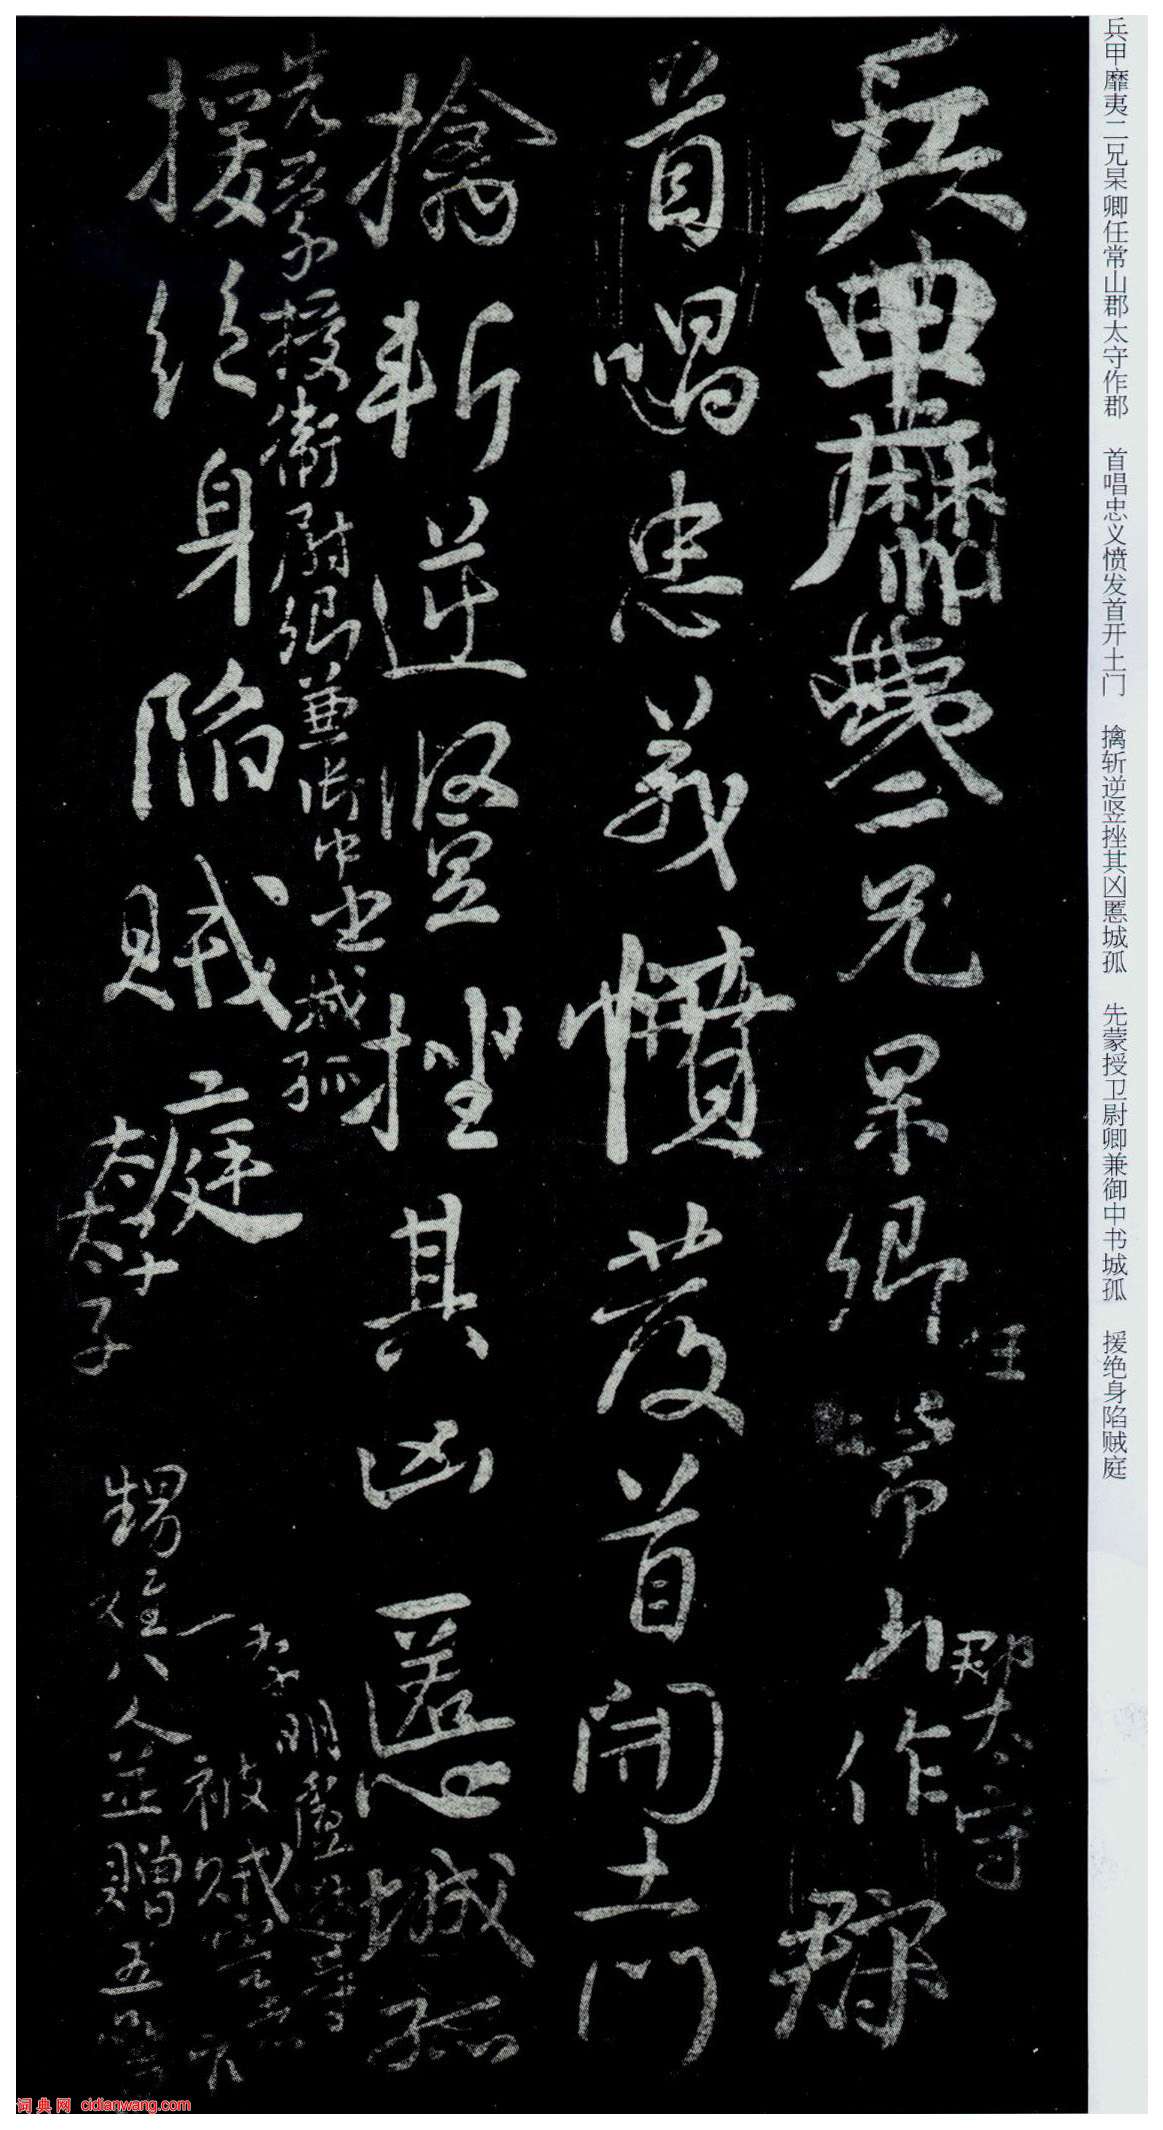 兵甲靡夷二兄杲卿任常山郡太守作郡 首唱忠义愤发首开土门 擒斩逆竖挫其凶慝城孤 先蒙授卫尉卿兼御中书城孤 援绝身陷贼庭
兵甲靡夷二兄杲卿常山作郡
任
郡太守
首唱忠義憤發首開土門
擒斬逆竪挫其凶慝城孤
先蒙授衛尉卿兼御中書城孤
援絶身陷賊庭
太子
明盧逖等
被賊害
甥姪八人並贈五
词典网 cidianwang.com